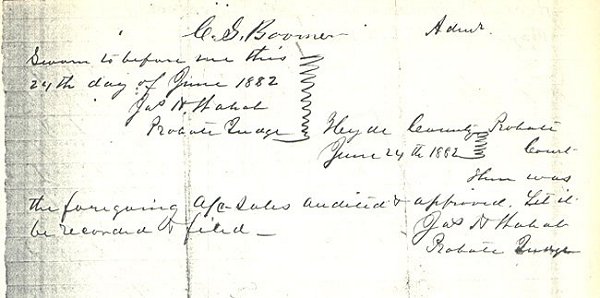 C. G. Boomer Admr.
Sworn to before me this
24th day of June 1882
Jas H. Wahab
Probate Judge
Hyde County Probate
June 24th 1882 Court
then was
the foregoing a/c-sales audited & approved. Let it
be recorded & filed —
Jas H Wahab
Probate Judge